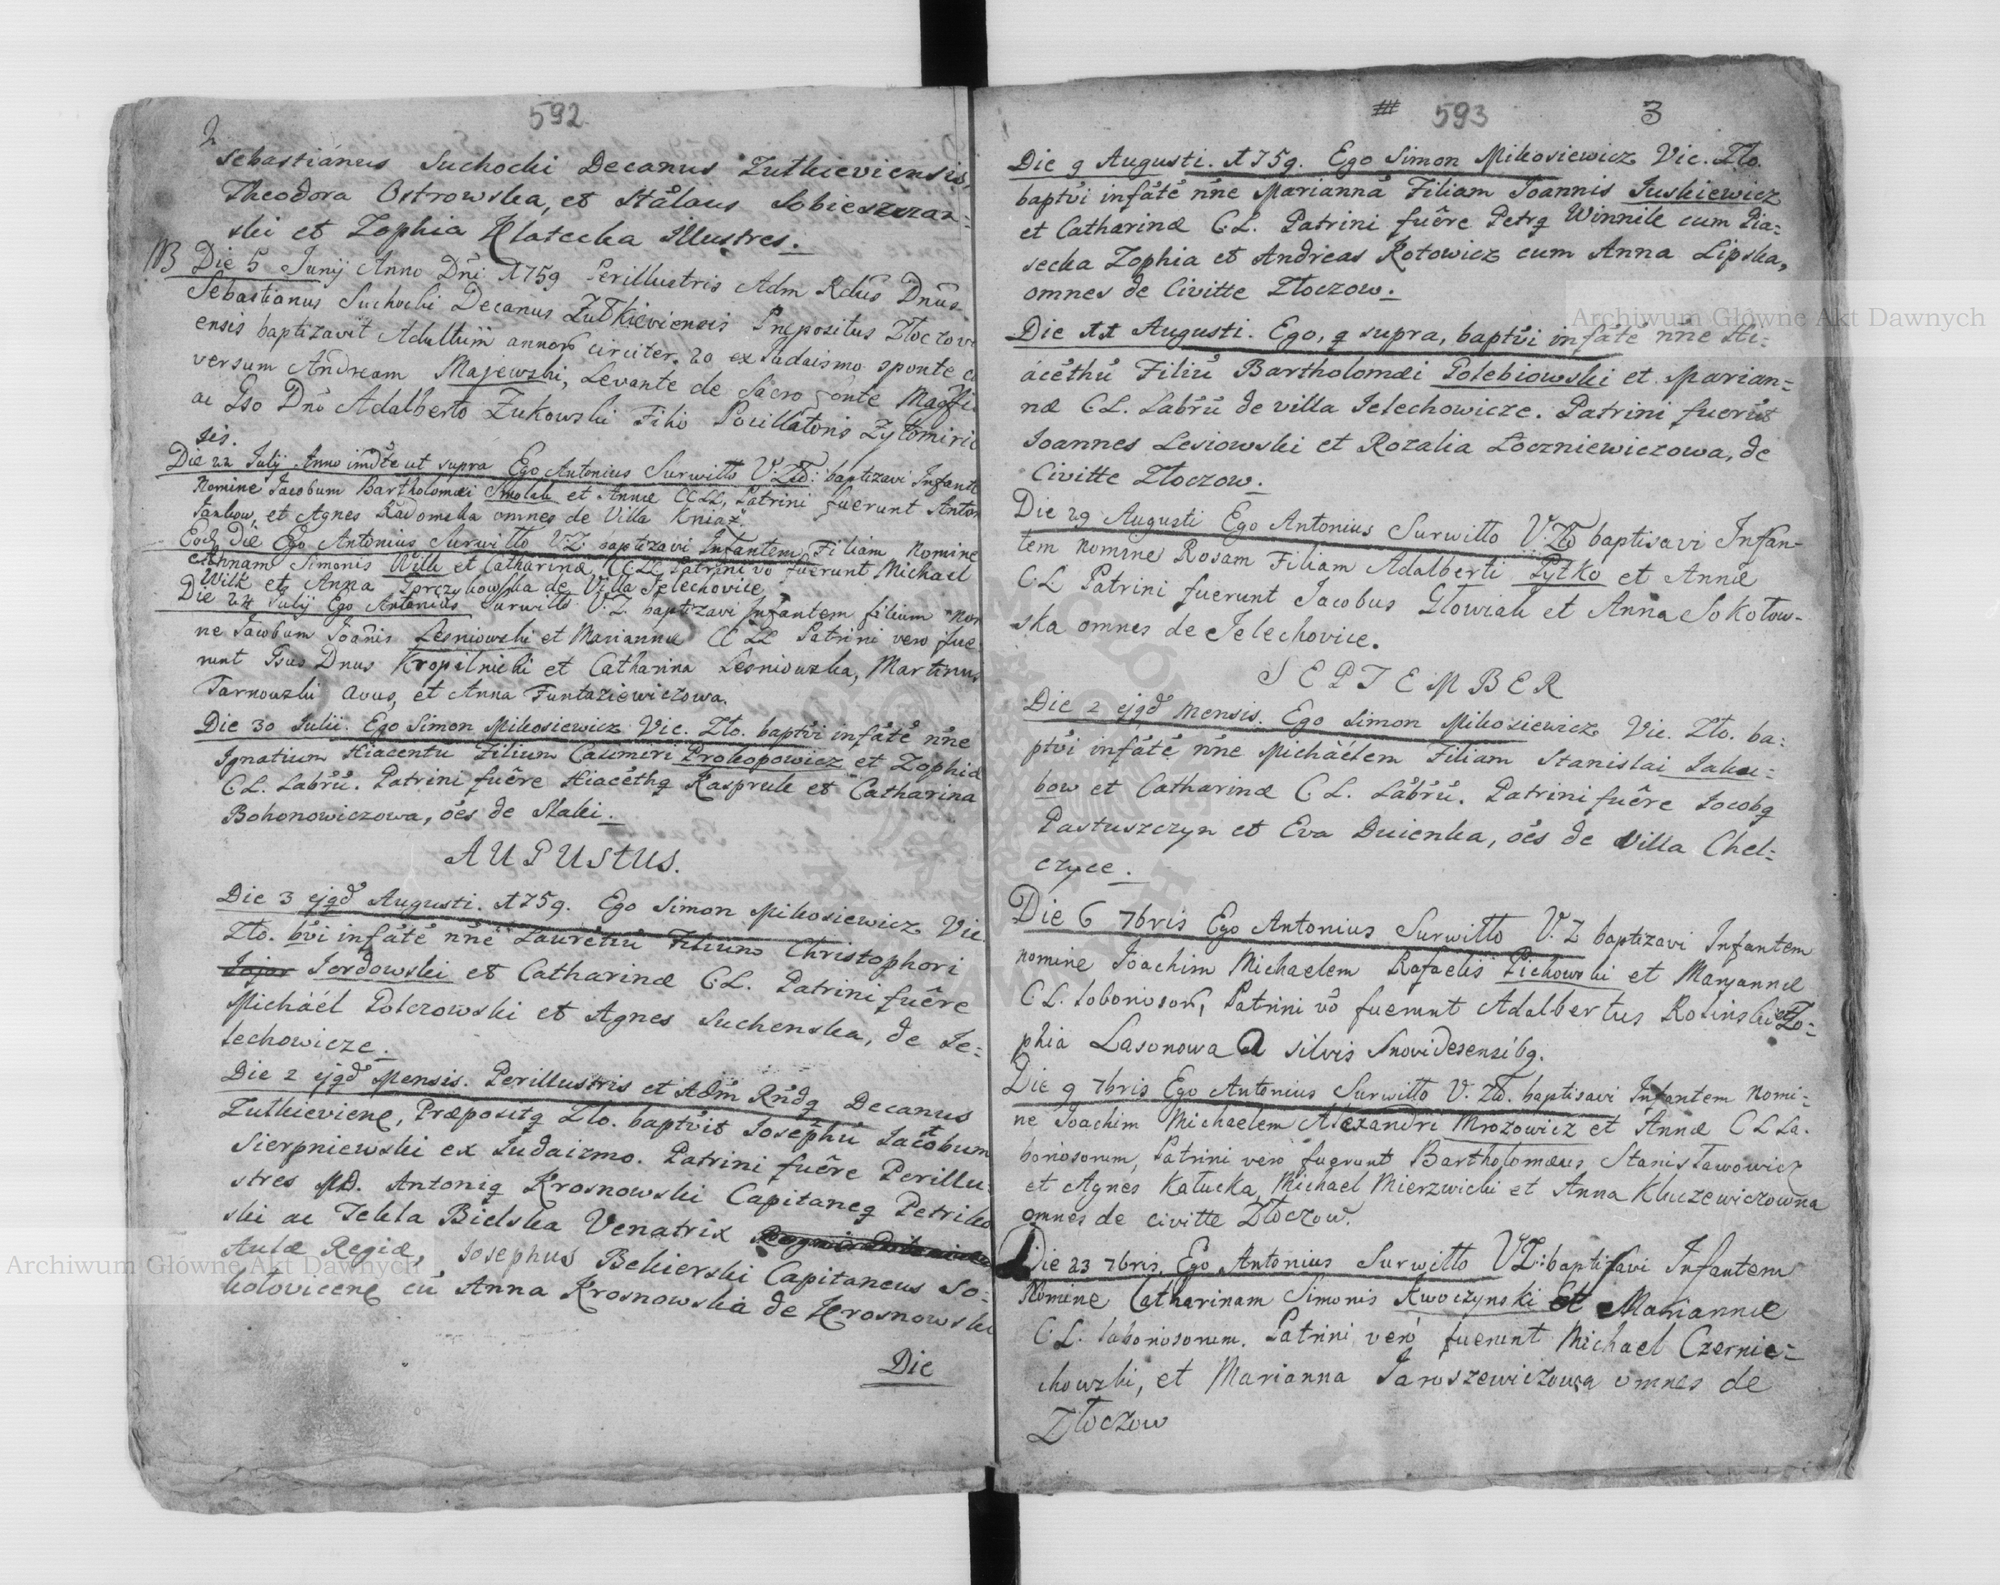 592
2
Sebastianus Suchocki Decanus Zulkieviensis,
Theodora Ostrowska, et Stålaus Sobieszczan-
ski et Zophia Klatecka Illustres.
NB Die 5 Junij Anno Dñi 1759 Perillustris Adm Rdus Dnus
Sebastianus Suchocki Decanus Zułkieviensis Præpositus Złoczovi
ensis baptizavit Adultum annor circiter 20 ex Judaismo sponte co
versum Andream Majewski, Levante de Sacro fonte Magffi
ac Gso Dno Adalberto Żukowski Filio Pocillatoris Zytomiri
sis.
Die 22 Julij Anno imdte ut supra Ego Antonius Surwitto V: Zło: baptizavi Infante
Nomine Jacobum Bartholomæi Smolak et Annæ CCLL, Patrini fuerunt Anton
et Agnes Radomska omnes de Villa Kniaź.
Eod: Die Ego Antonius Surwitto V.Z. baptizavi Infantem Filiam Nomine
Annam Simonis Wilk et Catharinæ CCLL Patrini vo fuerunt Michael
Wilk et Anna Gorzykowska de Villa Jelechovice
Die 24 Julij Ego Antonius Surwitto V: Z. baptizavi Infantem filium Nomi
ne Jacobum Joañis Lesniowski et Mariannæ CC LL Patrini vero fue
runt Gsus Dnus Kropilnicki et Catharina Lesniowska, Martinus
Tarnowski Avus, et Anna Funtaziewiczowa.
Die 30 Julii. Ego Simon Mikosiewicz Vic. Zło. baptvi infåtė nñe
Ignatium Hiacentů Filium Casimiri Prokopowicz et Zophiæ
C.L. Labrů. Patrini fuêre Hiacėthq Kasprule et Catharina
Bohonowiczowa, oės de Slaki.
AUGUSTUS.
Die 3 ejqd Augusti. 1759. Ego Simon Mikosiewicz Vic.
Zło. bvi infåtė nñe Laurėtiů Filium Christophori
Jajor Jordowski et Catharinæ C.L. Patrini fuêre
Michaėl Golczowski et Agnes Suchenska, de Je-
lechowicze.
Die 2 ejqd Mensis. Perillustris et Adm Rndq Decanus
Zulkieviene, Præpositq Zło. baptvit Josephů Jacobum
Sierpniewski ex Judaizmo. Patrini fuêre Perillu
stres MD. Antoniq Krosnowski Capitaneq Petriko
ski ac Tekla Bielska Venatrix
Aulæ Regiæ, Josephus Bekierski Capitaneus So-
kolovicene ců Anna Krosnowska de Krosnowski
Die
593
3
Die 9 Augusti. 1759. Ego Simon Mikosiewicz Vic. Zło.
baptvi infåtė nñe Mariannå Filiam Joannis Juskiewicz
et Catharinæ C.L. Patrini fuêre Petrq Winnik cum Pia-
secka Zophia et Andreas Kotowicz cum Anna Lipska,
omnes de Civitte Złoczow.
Die 11 Augusti. Ego, q supra, baptvi infåtė nñe Hi-
acėthů Filiů Bartholomæi Golebiowski et Marian-
næ C.L. Labrů de villa Jelechowicze. Patrini fuerůt
Joannes Lesiowski et Rozalia Łoczniewiczowa, de
Civitte Złoczow.
Die 29 Augusti Ego Antonius Surwitto V: Zło baptisavi Infan-
tem nomine Rosam Filiam Adalberti Pytko et Annæ
C L Patrini fuerunt Jacobus Głowiak et Anna Sokołow-
ska omnes de Jelechovice.
SEPTEMBER
Die 2 ejqd Mensis. Ego Simon Mikosiewicz Vic. Zło. ba-
ptvi infåtė nñe Michaėlem Filiam Stanislai Jaku-
bow et Catharinæ C.L. Låbrů. Patrini fuêre Jocobq
Pastuszczyn et Eva Duienka, oės de Villa Chel-
czyce.
Die 6 7bris Ego Antonius Surwitto V. Z baptizavi Infantem
nomine Joachim Michaelem Rafaelis Pichowski et Maryannæ
C.L. loboriosor, Patrini vŏ fuerunt Adalbertus Rolinski et Zo-
phia Lasonowa a silvis Snovidesensibq.
Die 9 7bris Ego Antonius Surwitto V. Zło. baptisavi Infantem Nomi-
ne Joachim Michaelem Alexandri Mrozowicz et Annæ C L La-
boriosorum, Patrini vero fuerunt Bartholomæus Stanisławowicz
et Agnes Katucka, Michael Mierzwicki et Anna Kluczewiczowna
omnes de civitte Złoczow.
Die 23 7bris. Ego Antonius Surwitto VZ: baptisavi Infantem
Nomine Catharinam Simonis Kwoczynski Et Mariannæ
C.L. laboriosorum. Patrini vero fuerunt Michael Czernie-
chowski, et Marianna Jaroszewiczowa omnes de
Złoczow
Archiwum Główne Akt Dawnych
Archiwum Główne Akt Dawnych